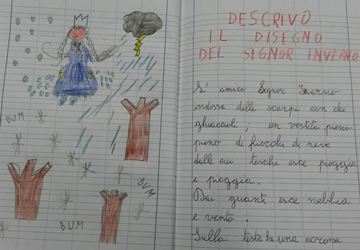 DESCRIVO
IL DISEGNO
DEL SIGNOR INVERNO
L'amico Signor Inverno
indossa delle scarpe con dei
ghiaccioli, un vestito pieno
pieno di fiocchi di neve
dalle cui tasche esce pioggia
e pioggia.
Dai guanti esce nebbia
e vento.
Sulla testa ha una corona
BUM
BUM
BUM